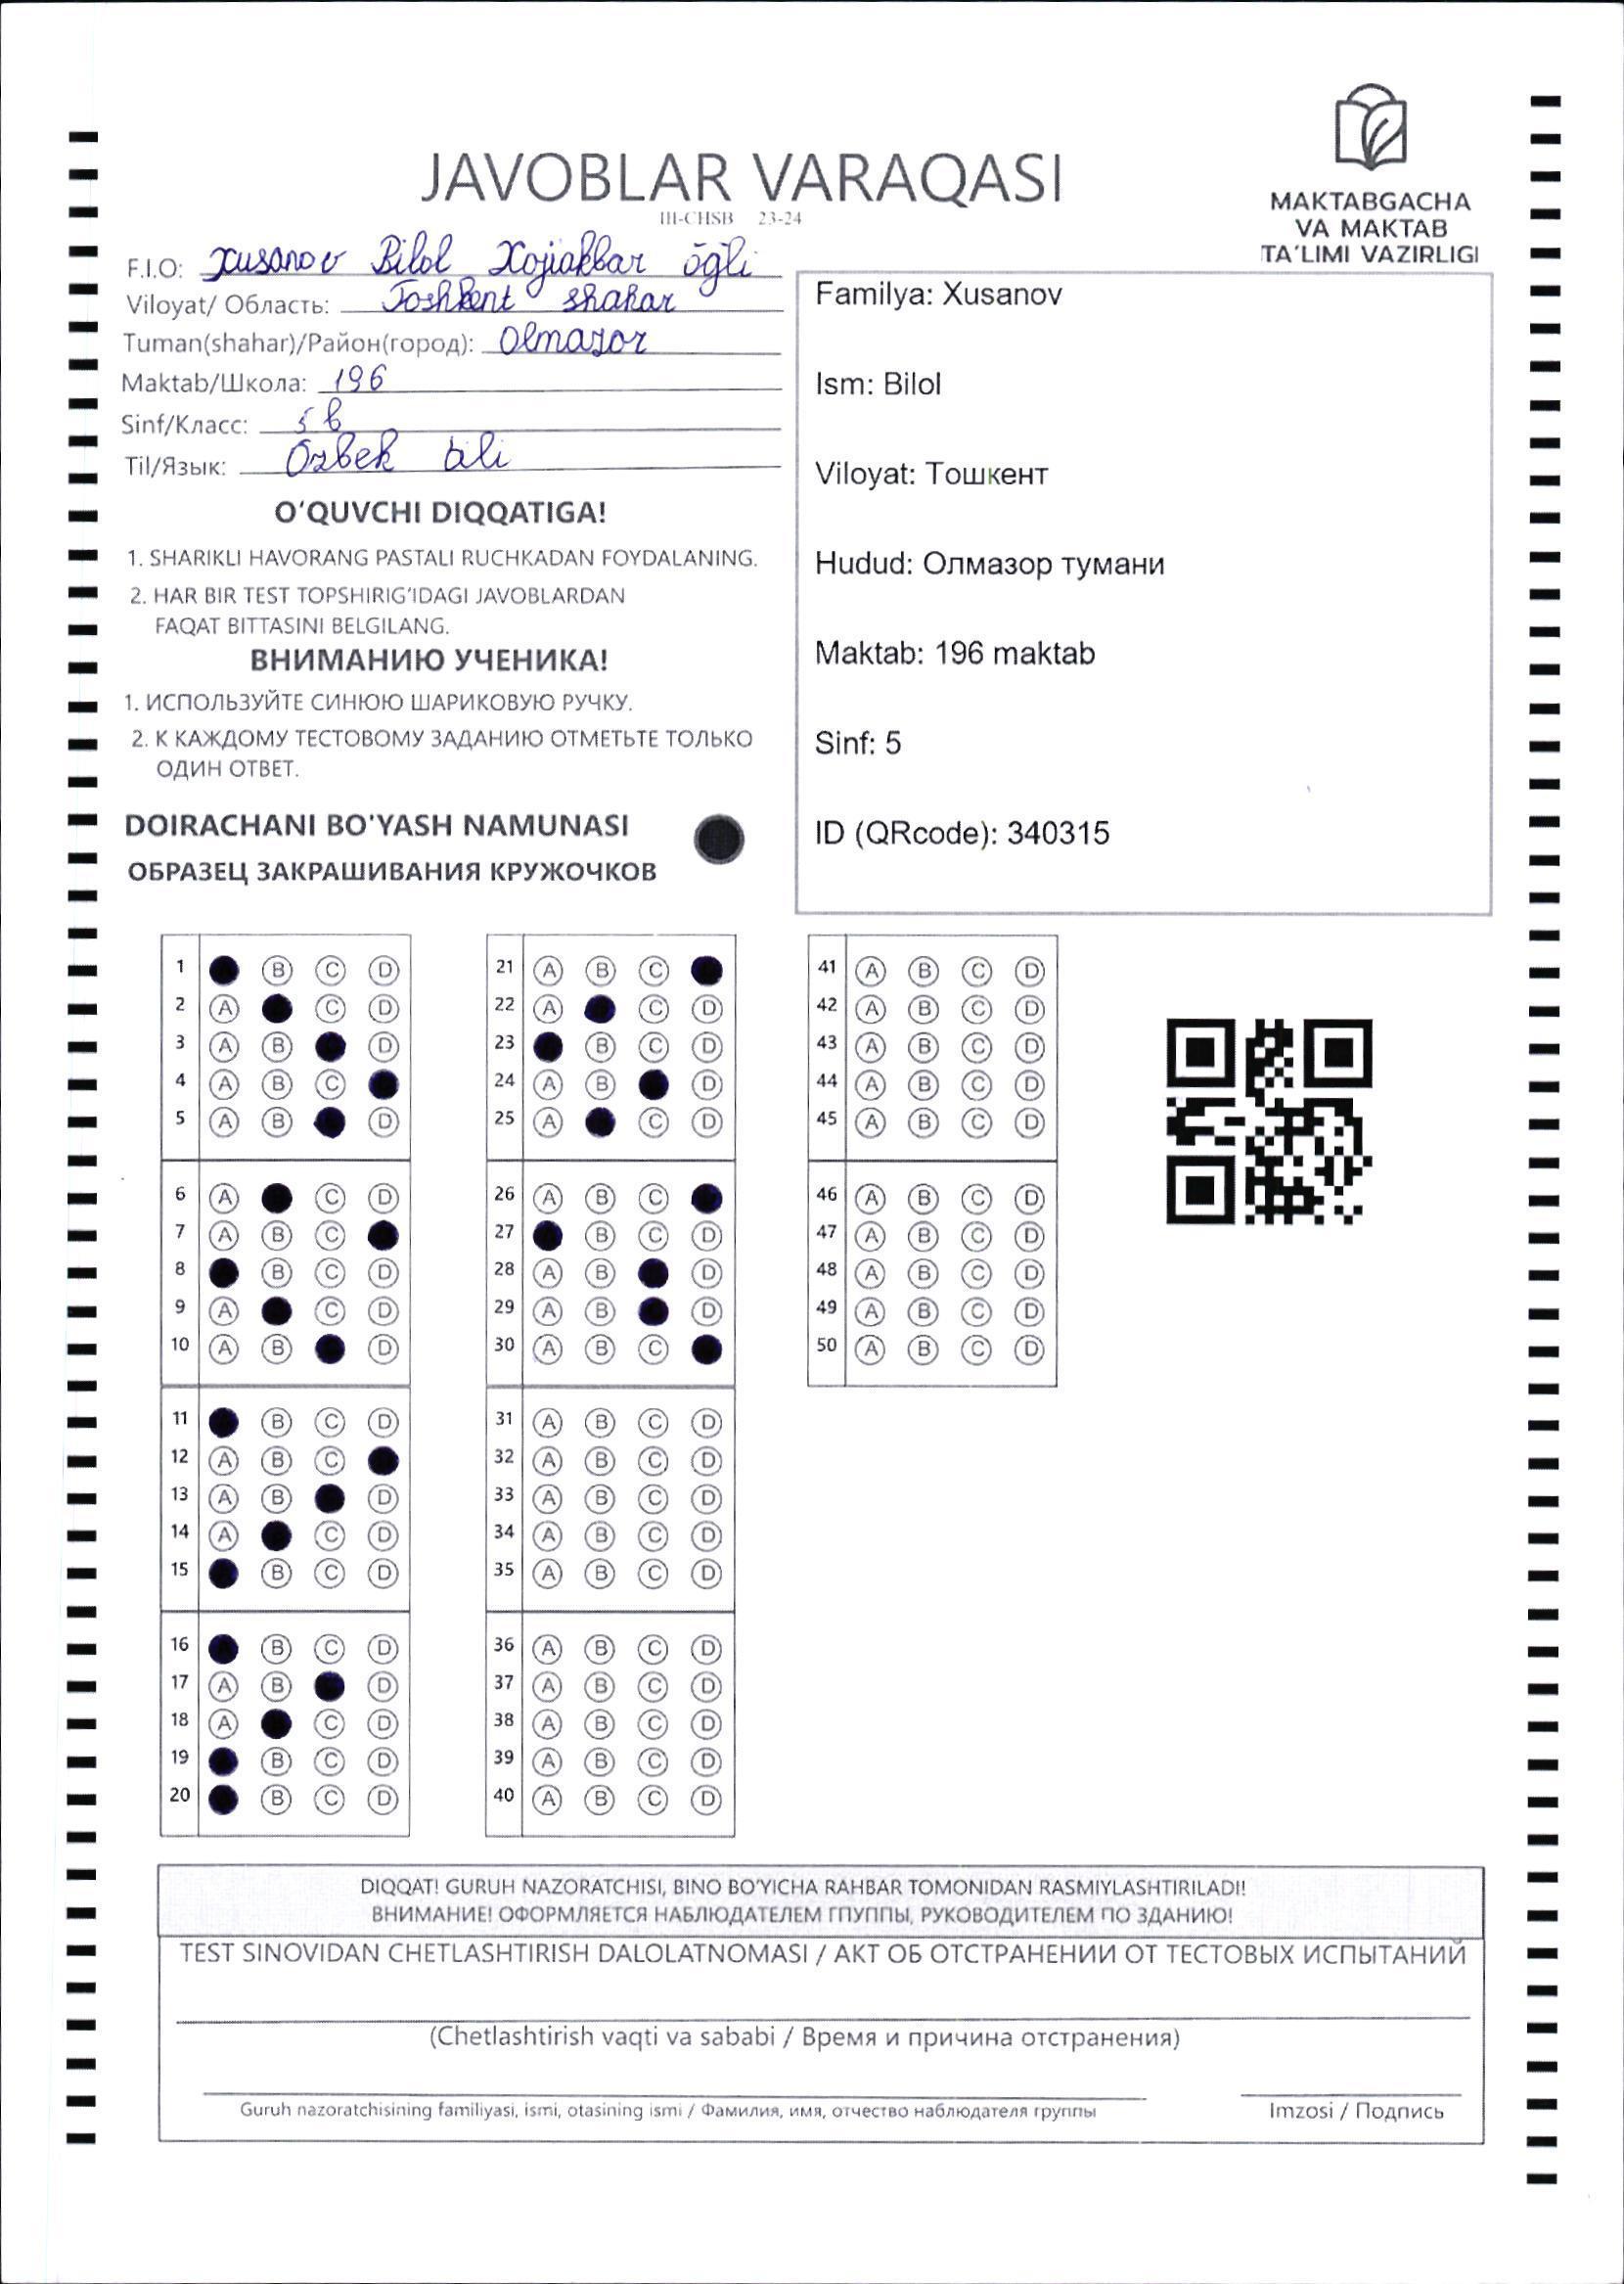 JAVOBLAR VARAQASI
III-CHSB 23-24
MAKTABGACHA
VA MAKTAB
TA'LIMI VAZIRLIGI
F.I.O: Xusanov Bilol Xojiakbar o'g'li
Viloyat/ Область: Toshkent shahar
Tuman(shahar)/Район(город): Olmazor
Maktab/Школа: 196
Sinf/Класс: 5 b
Til/Язык: Ozbek tili
O'QUVCHI DIQQATIGA!
1. SHARIKLI HAVORANG PASTALI RUCHKADAN FOYDALANING.
2. HAR BIR TEST TOPSHIRIG'IDAGI JAVOBLARDAN
FAQAT BITTASINI BELGILANG.
ВНИМАНИЮ УЧЕНИКА!
1. ИСПОЛЬЗУЙТЕ СИНЮЮ ШАРИКОВУЮ РУЧКУ.
2. К КАЖДОМУ ТЕСТОВОМУ ЗАДАНИЮ ОТМЕТЬТЕ ТОЛЬКО
ОДИН ОТВЕТ.
DOIRACHANI BO'YASH NAMUNASI
ОБРАЗЕЦ ЗАКРАШИВАНИЯ КРУЖОЧКОВ
Familya: Xusanov
Ism: Bilol
Viloyat: Тошкент
Hudud: Олмазор тумани
Maktab: 196 maktab
Sinf: 5
ID (QRcode): 340315
1 B C D
2 A C D
3 A B D
4 A B C
5 A B D
6 A C D
7 A B C
8 B C D
9 A C D
10 A B D
11 B C D
12 A B C
13 A B D
14 A C D
15 B C D
16 B C D
17 A B D
18 A C D
19 B C D
20 B C D
21 A B C
22 A C D
23 B C D
24 A B D
25 A C D
26 A B C
27 B C D
28 A B D
29 A B D
30 A B C
31 A B C D
32 A B C D
33 A B C D
34 A B C D
35 A B C D
36 A B C D
37 A B C D
38 A B C D
39 A B C D
40 A B C D
41 A B C D
42 A B C D
43 A B C D
44 A B C D
45 A B C D
46 A B C D
47 A B C D
48 A B C D
49 A B C D
50 A B C D
DIQQAT! GURUH NAZORATCHISI, BINO BO'YICHA RAHBAR TOMONIDAN RASMIYLASHTIRILADI!
ВНИМАНИЕ! ОФОРМЛЯЕТСЯ НАБЛЮДАТЕЛЕМ ГПУППЫ, РУКОВОДИТЕЛЕМ ПО ЗДАНИЮ!
TEST SINOVIDAN CHETLASHTIRISH DALOLATNOMASI / АКТ ОБ ОТСТРАНЕНИИ ОТ ТЕСТОВЫХ ИСПЫТАНИЙ
(Chetlashtirish vaqti va sababi / Время и причина отстранения)
Guruh nazoratchisining familiyasi, ismi, otasining ismi / Фамилия, имя, отчество наблюдателя группы
Imzosi / Подпись